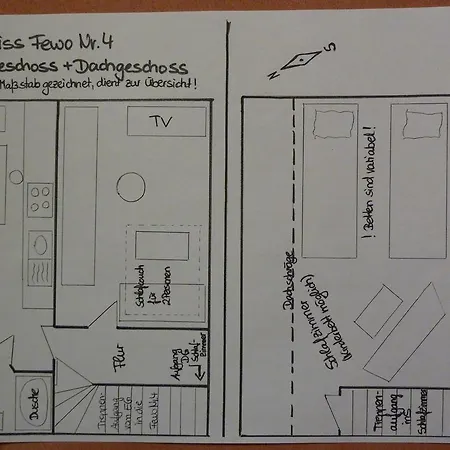 iss Fewo Nr. 4
eschoss + Dachgeschoss
Maßstab gezeichnet, dient zur Übersicht!
N
S
TV
Schlafcouch
für
2 Personen
Flur
Aufgang
DG
Schlaf-
zimmer
Dusche
Treppen-
Aufgang
vom EG
in die
Fewo Nr. 4
Dachschräge
Schlafzimmer
(Kinderbett möglich)
! Betten sind variabel!
Treppen-
aufgang
ins
Schlafzimmer